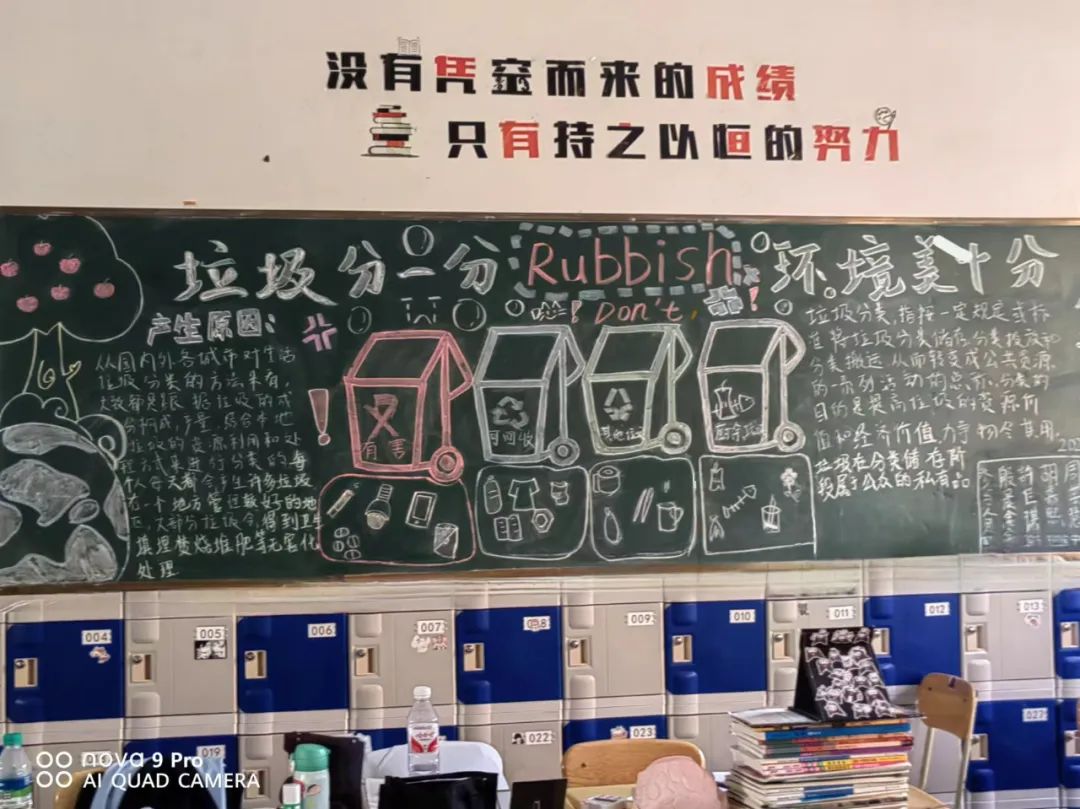 没有凭空而来的成绩
只有持之以恒的努力
垃圾分一分
Rubbish
环境美十分
Don't
产生原因:
从国内外各城市对生活
垃圾分类的方法来看,
大致都是根据垃圾的成
分构成,产量,结合本地
垃圾的资源利用和处
理方式来进行分类的每
个人每天都会产生许多垃圾
在一个地方管理较好的地
区,大部分垃圾会得到卫生
填埋焚烧堆肥等无害化
处理
有害
可回收
其他垃圾
厨余垃圾
垃圾分类,指按一定规定或标
准将垃圾分类储存,分类投放和
分类搬运,从而转变成公共资源
的一系列活动的总称,分类的
目的是提高垃圾的资源价
值和经济价值,力争物尽其用,
垃圾在分类储存阶
段属于公众的私有品
004
005
006
007
008
009
010
011
012
013
019
022
023
027
nova 9 Pro
AI QUAD CAMERA